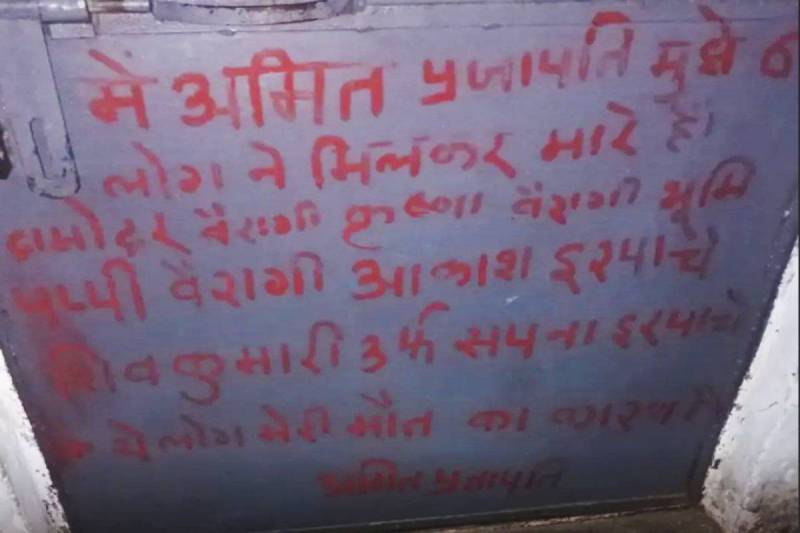 मे अमित प्रजापति मुझे 6
लोग ने मिलकर मारे है
दामोदर वैरागी कृष्णा वैरागी भूमि
पप्पी वैरागी आकाश इरपाचे
शिवकुमारी उर्फ सपना इरपाचे
ये लोग मेरी मौत का कारण है
अमित प्रजापति